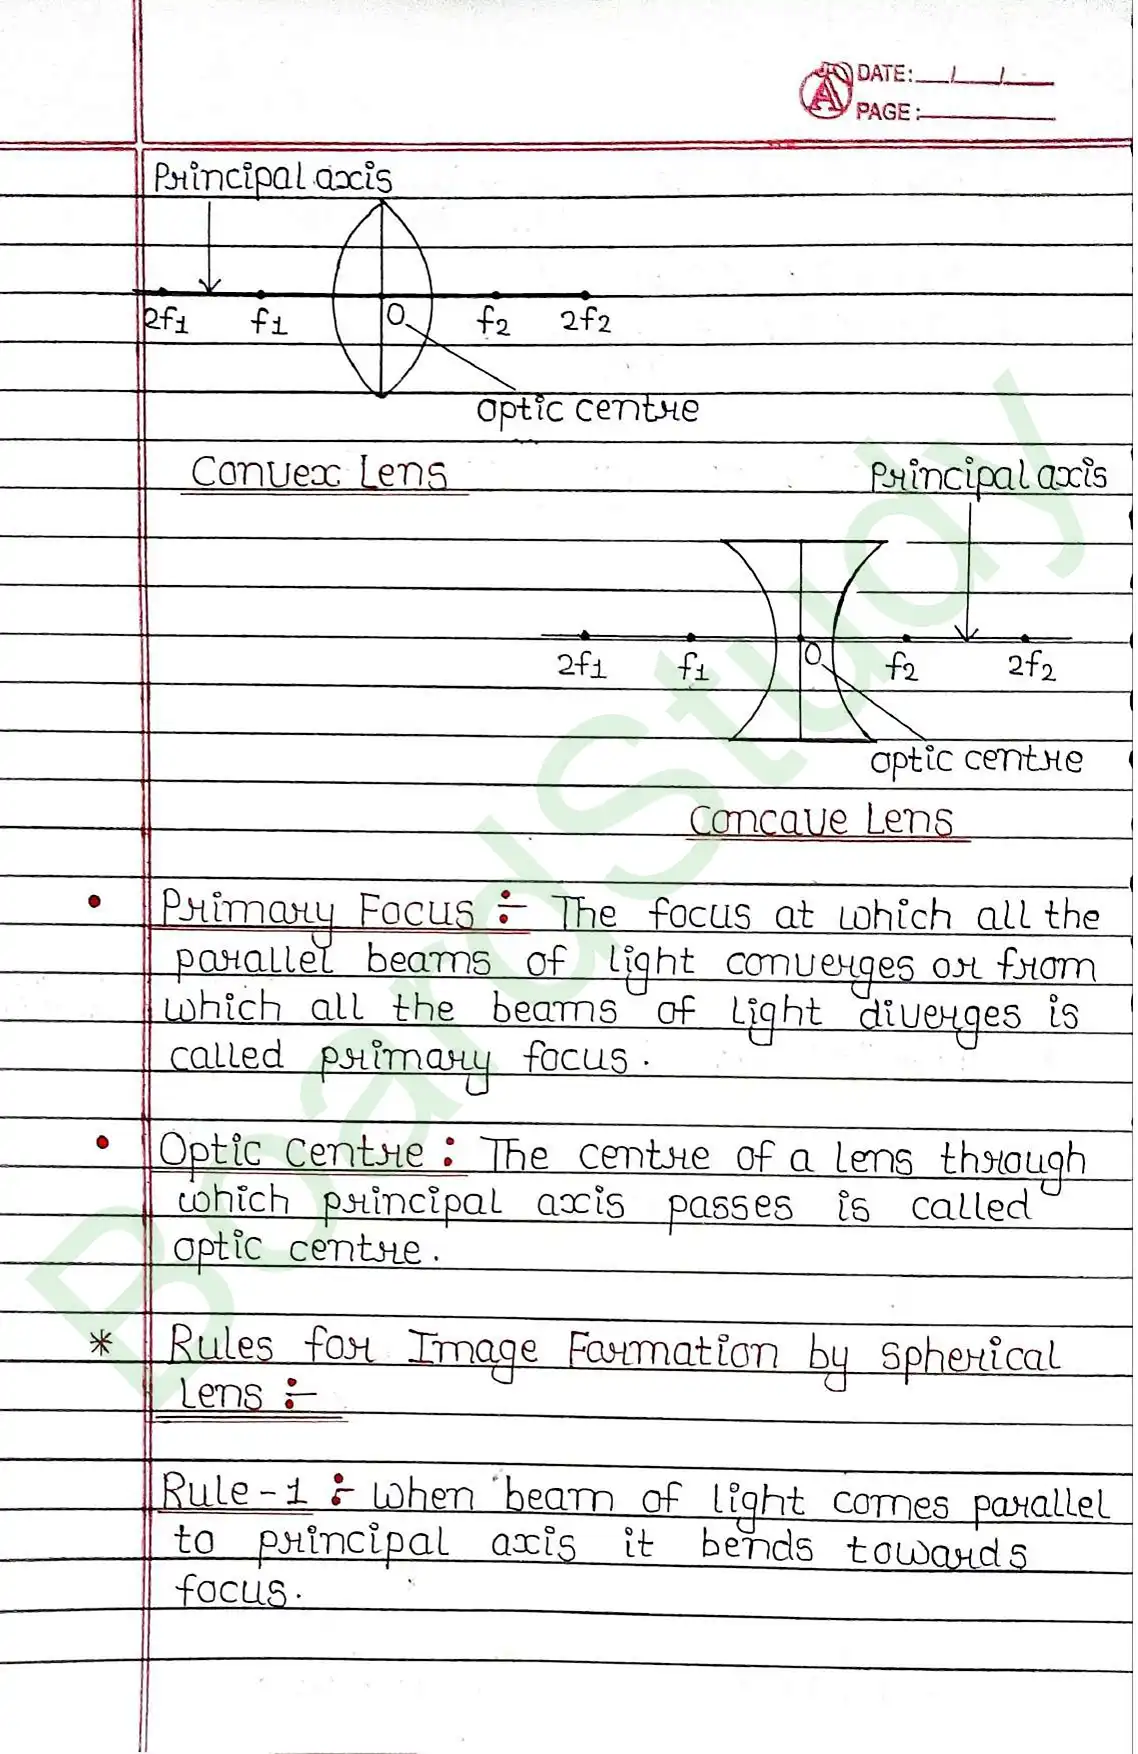 DATE: / /
PAGE:
Principal axis
2f1 f1 O f2 2f2
optic centre
Convex Lens
Principal axis
2f1 f1 O f2 2f2
optic centre
Concave Lens
• Primary Focus :- The focus at which all the
parallel beams of light converges or from
which all the beams of light diverges is
called primary focus.
• Optic Centre : The centre of a lens through
which principal axis passes is called
optic centre.
* Rules for Image Formation by spherical
Lens :-
Rule-1 :- When beam of light comes parallel
to principal axis it bends towards
focus.
BoardStudy